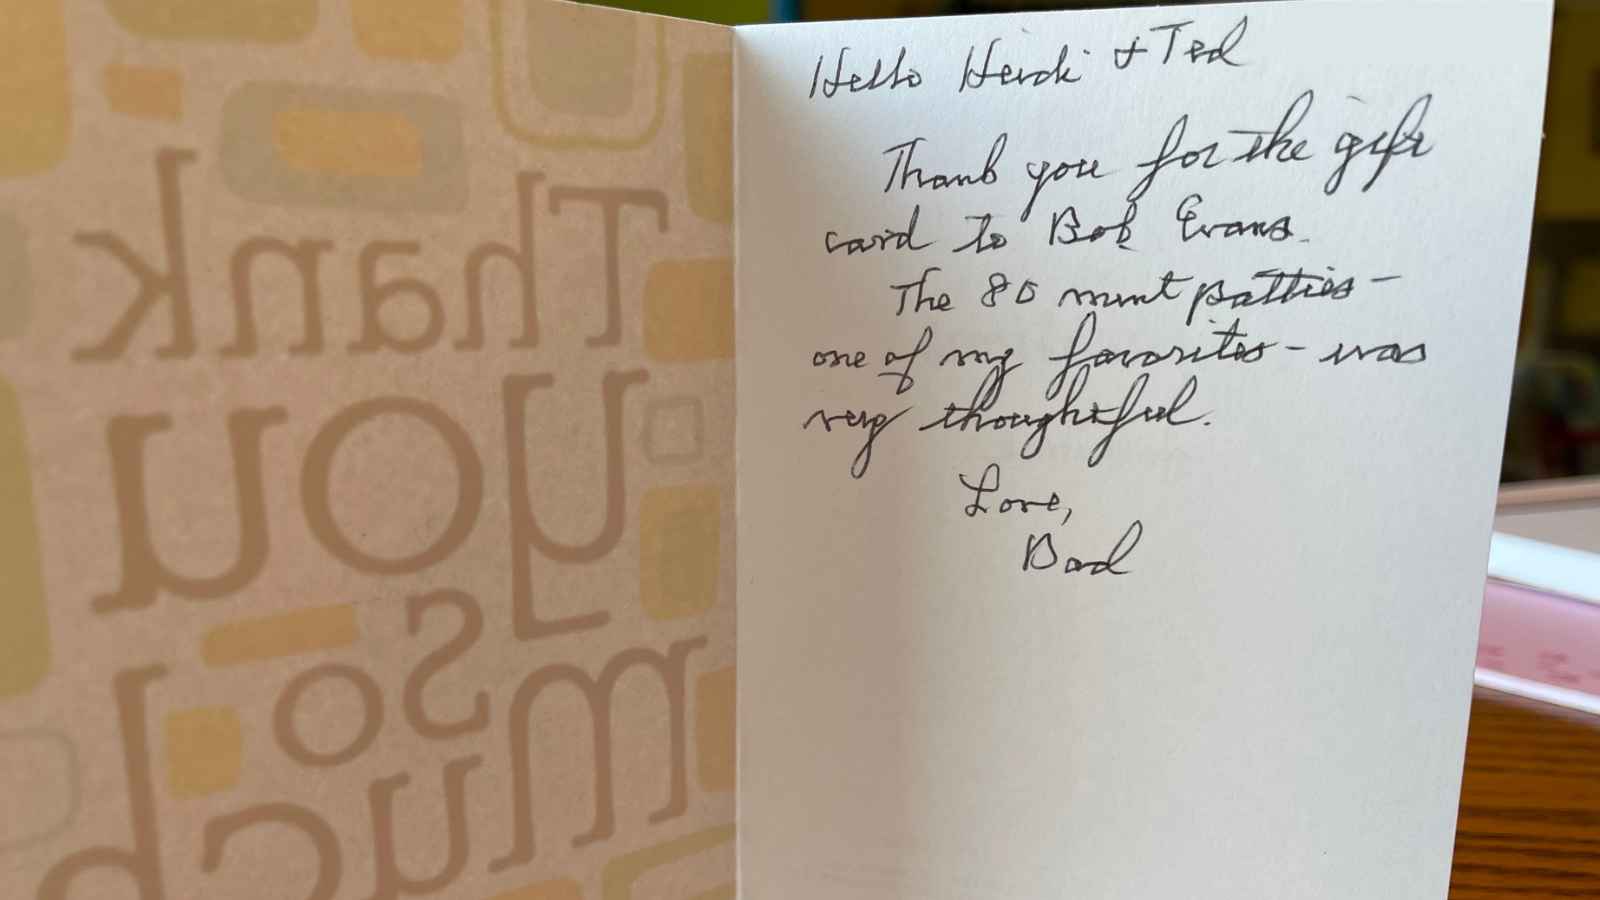 Thank
you
so
much
Hello Heidi + Ted
Thank you for the gift
card to Bob Evans.
The 80 mint patties -
one of my favorites - was
very thoughtful.
Love,
Dad